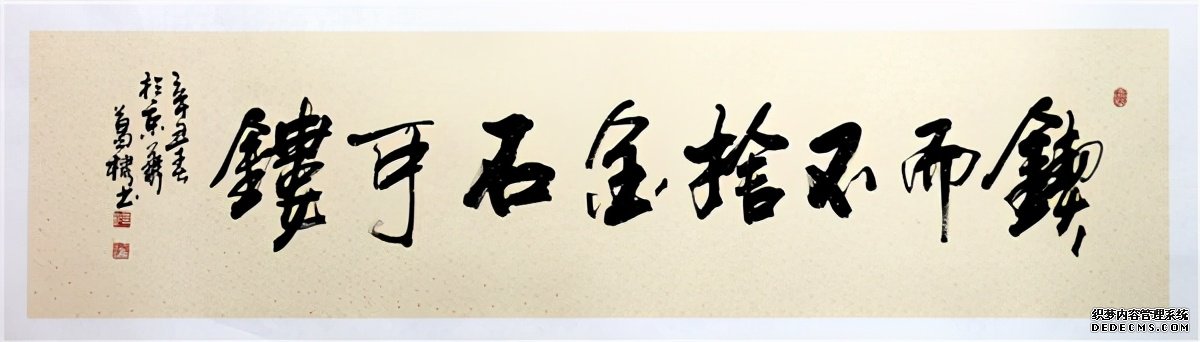 鍥而不捨金石可鏤
辛丑春
於京華
葛书
织梦内容管理系统
DEDECMS.COM